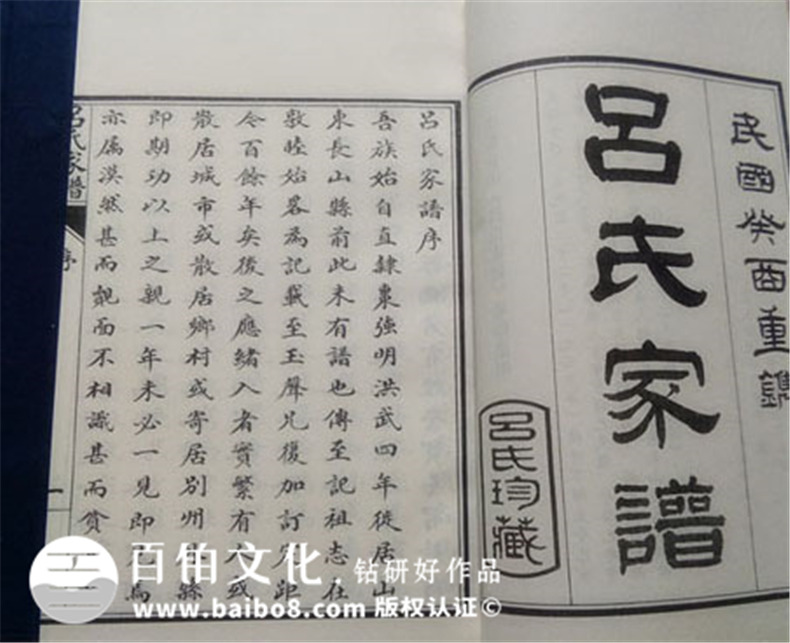 民國癸酉重鐫
呂氏家譜
呂氏珍藏
呂氏家譜序
吾族始自直隸棗強明洪武四年徙居山
東長山縣前此未有譜也傳至記祖志在
敦睦始畧為記載至玉聲兄復加訂距
今百餘年矣後之應緒入者實繁有或
散居城市或散居鄉村或寄居別州縣
即期功以上之親一年未必一見即見為
亦屬漠然甚而覿面不相識甚而貧
呂氏家譜
序
一
百铂文化.钻研好作品
www.baibo8.com 版权认证©